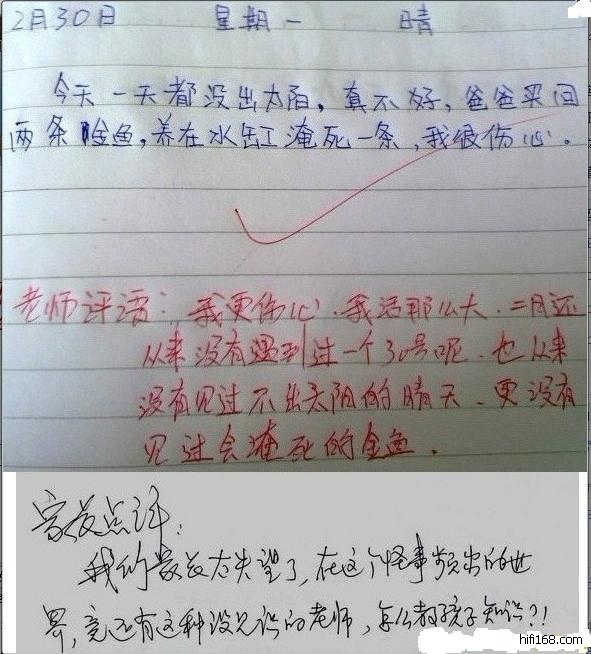 2月30日 星期一 晴
今天一天都没出太阳，真不好，爸爸买回
两条金鱼，养在水缸淹死一条，我很伤心。
老师评语：我更伤心．我活那么大．二月还
从来没有遇到过一个30号呢．也从来
没有见过不出太阳的晴天．更没有
见过会淹死的金鱼．
家长点评：
我的家长太失望了，在这个怪事频出的世
界，竟还有这种没见识的老师，怎么教孩子知识？！
hifi168.com